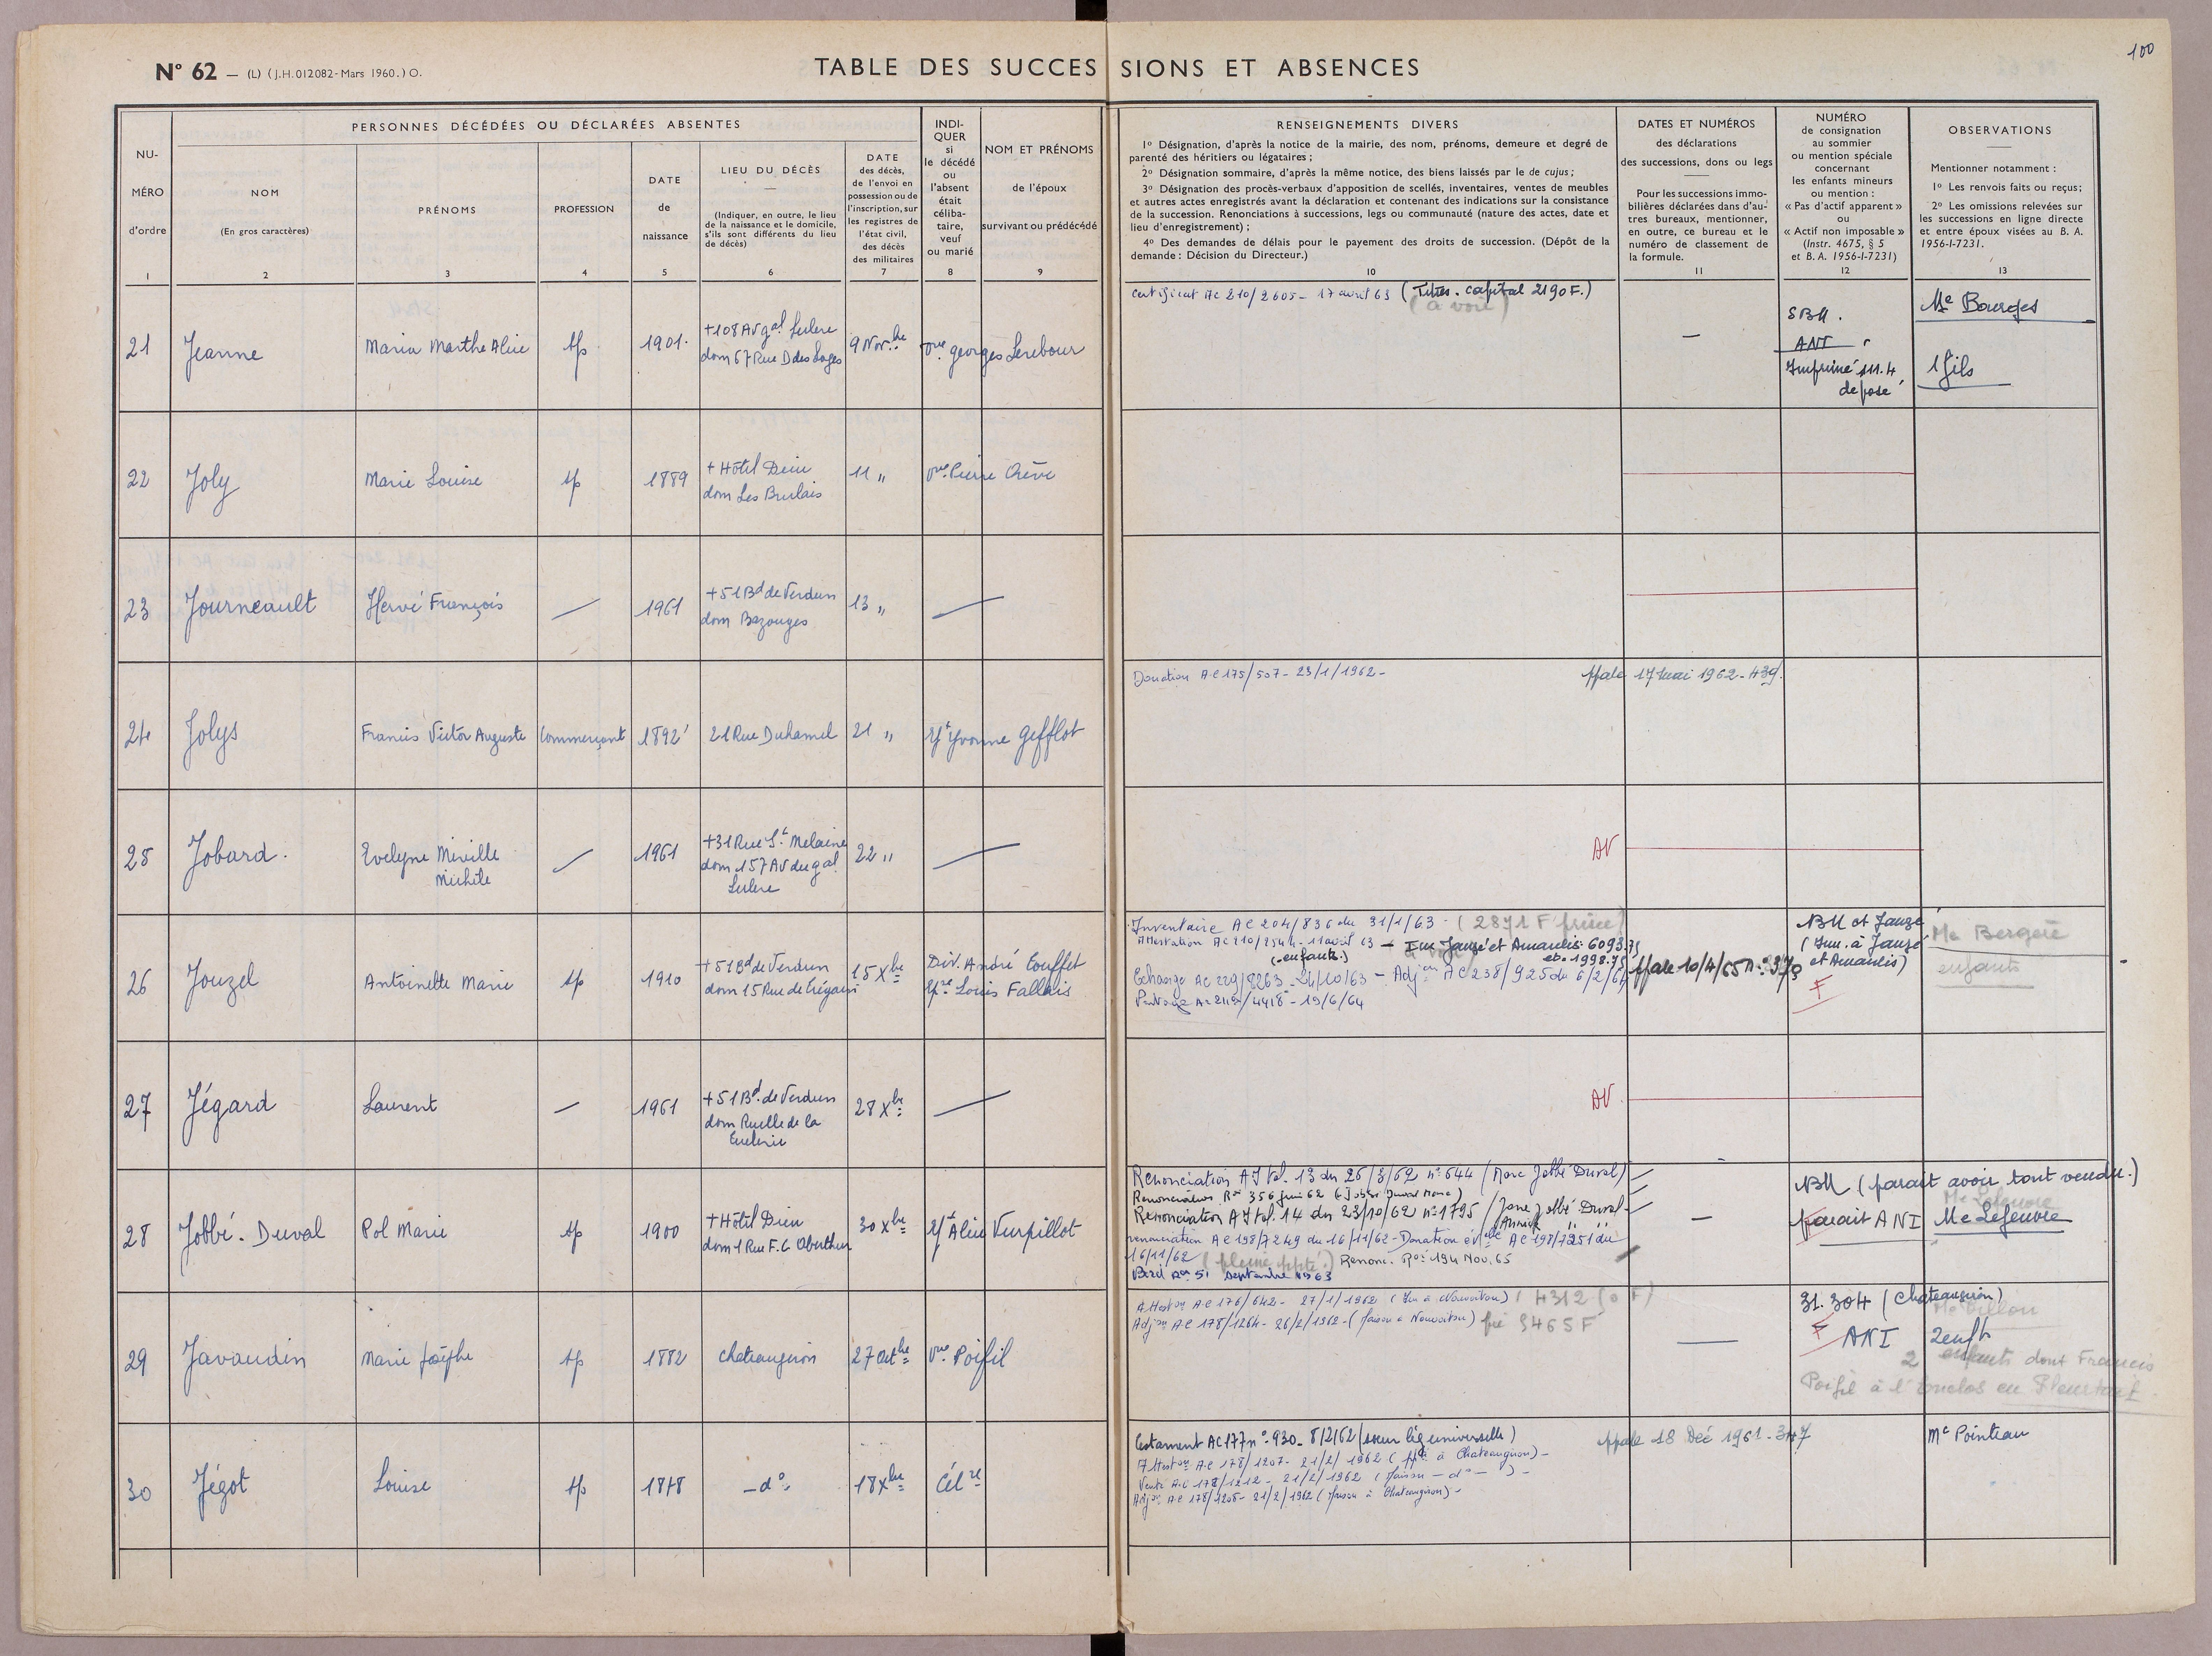 100
N° 62 — (L) (J.H. 012082-Mars 1960.) O.
TABLE DES SUCCESSIONS ET ABSENCES
NU-
MÉRO
d'ordre
1
PERSONNES DÉCÉDÉES OU DÉCLARÉES ABSENTES
NOM
(En gros caractères)
2
PRÉNOMS
3
PROFESSION
4
DATE
de
naissance
5
LIEU DU DÉCÈS
(Indiquer, en outre, le lieu
de la naissance et le domicile,
s'ils sont différents du lieu
de décès)
6
DATE
des décès,
de l'envoi en
possession ou de
l'inscription, sur
les registres de
l'état civil,
des décès
des militaires
7
INDI-
QUER
si
le décédé
ou
l'absent
était
céliba-
taire,
veuf
ou marié
8
NOM ET PRÉNOMS
de l'époux
survivant ou prédécédé
9
RENSEIGNEMENTS DIVERS
1° Désignation, d'après la notice de la mairie, des nom, prénoms, demeure et degré de
parenté des héritiers ou légataires ;
2° Désignation sommaire, d'après la même notice, des biens laissés par le de cujus ;
3° Désignation des procès-verbaux d'apposition de scellés, inventaires, ventes de meubles
et autres actes enregistrés avant la déclaration et contenant des indications sur la consistance
de la succession. Renonciations à successions, legs ou communauté (nature des actes, date et
lieu d'enregistrement) ;
4° Des demandes de délais pour le payement des droits de succession. (Dépôt de la
demande : Décision du Directeur.)
10
DATES ET NUMÉROS
des déclarations
des successions, dons ou legs
Pour les successions immo-
bilières déclarées dans d'au-
tres bureaux, mentionner,
en outre, ce bureau et le
numéro de classement de
la formule.
11
NUMÉRO
de consignation
au sommier
ou mention spéciale
concernant
les enfants mineurs
ou mention :
« Pas d'actif apparent »
ou
« Actif non imposable »
(Instr. 4675, § 5
et B. A. 1956-I-7231)
12
OBSERVATIONS
Mentionner notamment :
1° Les renvois faits ou reçus;
2° Les omissions relevées sur
les successions en ligne directe
et entre époux visées au B. A.
1956-I-7231.
13
21 Jeanne Maria Marthe Alice sp 1901 +108 Av gal Leclerc
dom 67 Rue D des Loges 9 Nov.bre Vve georges Lerebour
Certificat AC 210/2605 - 17 avril 63 (Titres. capital 2190 F.)
(à voir)
—
SBM.
ANI
Imprimé 111.4
déposé
Me Bourges
1 fils
22 Joly Marie Louise sp 1889 + Hôtel Dieu
dom Les Brulais 11 " Vve Pierre
23 Journeault Hervé François — 1961 +51 Bd de Verdun
dom Bazouges 13 " —
24 Jolys Francis Victor Auguste Commerçant 1892 21 Rue Duhamel 21 " Yvonne Gefflot
Donation AC 175/507 - 23/1/1962 -
17 Mai 1962 - 439
25 Jobard. Evelyne Mireille
Michèle — 1961 +31 Rue St Melaine
dom 157 Av du gal
Leclerc 22 " —
AV
26 Jouzel Antoinette Marie sp 1910 +51 Bd de Verdun
dom 15 Rue de Trégain 15 Xbre Div. André Touffet
Louis Fallais
Inventaire AC 204/836 du 31/1/63 - (2871 F prisée)
Attestation AC 210/2544 - 11 avril 63 - Imm Janzé et Amanlis 6093.75
(enfants.) et. 1998.75
Echange AC 229/8263 - 24/10/63 - Adjon AC 238/925 du 6/2/64
Partage AC /4418 - 19/6/64
10/4/65 n° 370
BM et Janzé
(Imm. à Janzé
et Amanlis)
F
Me Bergeré
enfants
27 Jégard Laurent — 1961 +51 Bd de Verdun
dom Ruelle de la
28 Xbre —
AV.
28 Jobbé-Duval Pol Marie sp 1900 + Hôtel Dieu
dom 1 Rue F.C Oberthur 30 Xbre Alice Vurpillot
Renonciation AJ Vol. 13 du 26/3/62 n° 644 (Marc Jobbé Duval)
Renonciation 356 juin 62 (Jobbé Duval Marc)
Renonciation AJ Vol. 14 du 23/10/62 n° 1795 (Jobbé Duval
Annick
renonciation AC 198/7249 du 16/11/62 - Donation AC 198/7251 du
16/11/62 (pleine ppté.) Renonc. 194 Nov. 65
51 septembre 1963
—
BM (parait avoir tout vendu.)
parait ANI
Me Lefeuvre
Me Lefeuvre
29 Javaudin Marie Josèphe sp 1882 Chateaugiron 27 Octbre Vve Poifil
Attestон AC 176/642 - 27/1/1962 (Imm à Nouvoitou)
Adjon AC 178/1264 - 26/2/1962 - (Maison à Nouvoitou)
—
31.304 (Chateaugiron)
F ANI
2 enfts
2 enfants dont Francis
Poifil à l'
30 Jégot Louise sp 1878 - d° - 18 Xbre Célre
Testament AC 177 n° 930 - 8/2/62 (soeur lég universelle)
Atteston AC 178/1207 - 21/2/1962 (à Chateaugiron) -
Vente AC 178/1212 - 21/2/1962 (Maison - d° -) -
Adjon AC 178/1208 - 21/2/1962 (Maison à Chateaugiron) -
18 Déc 1961 - 347
Me Pointeau